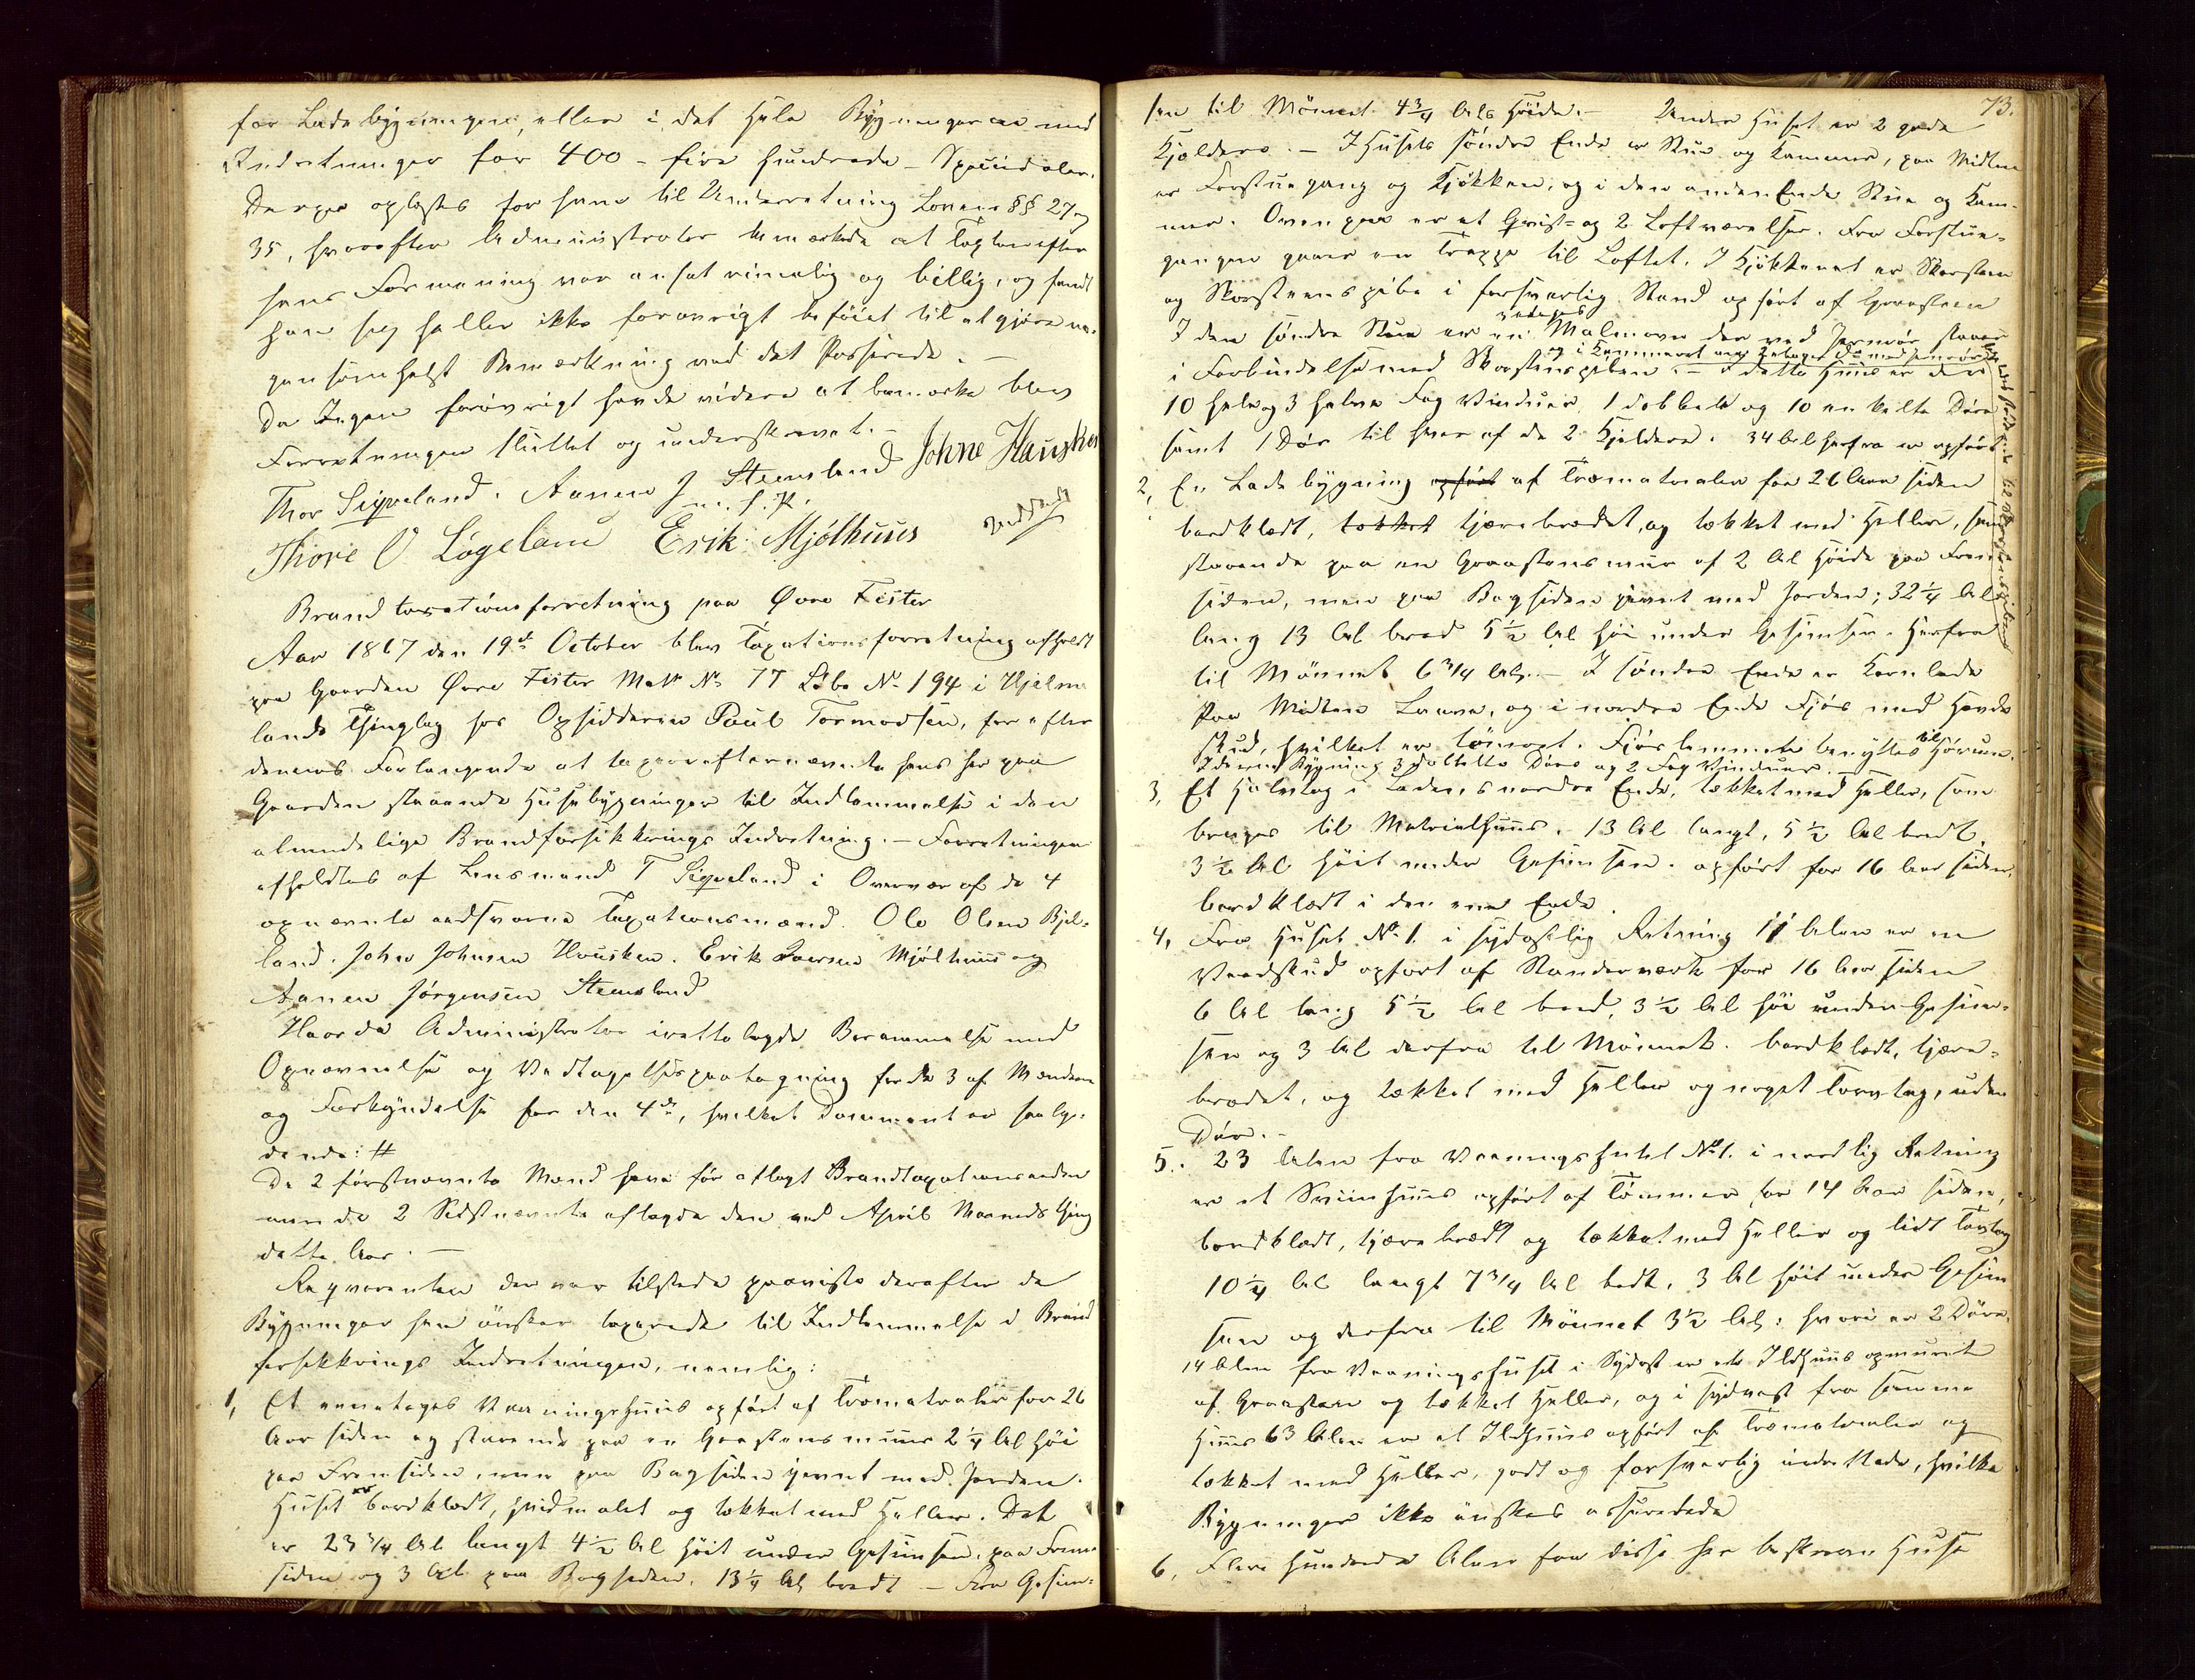 for Ladebygningen, eller i det Hele Bygningerne med
Indretninger for 400 - fire Hundrede - Speciedaler.
Derpaa oplæstes for ham til Underretning Lovens §§ 27 og
35, hvorefter Administrator bemærkede at Taxten efter
hans Formening var ansat rimelig og billig, og fandt
han sig heller ikke forøvrigt beføiet til at gjøre no-
gensomhelst Bemærkning ved det Passerede. —
Da Ingen forøvrigt havde videre at bemærke blev
Forretningen sluttet og underskrevet. -
Thor Siqveland. Aanen J Steensland Johne Hausken
m. f. P.
Thore O Løgeland Erik Mjølhuus
Brandtaxationsforretning paa Øvre Fister
Aar 1867 den 19de October blev Taxationsforretning afholdt
paa Gaarden Øvre Fister Matr No 77 Løbe No 194 i Hjelme-
lands Thinglag hos Opsidderen Poul Tormodsen, for efter
dennes Forlangende at taxere efternævnte hans her paa
Gaarden staaende Huusebygninger til Indlemmelse i den
almindelige Brandforsikkrings Indretning. — Forretningen
afholdtes af Lensmand T Siqveland i Overvær af de 4
opnævnte eedsvorne Taxationsmænd. Ole Olsen Bjel-
land. John Johnsen Housken. Erik Mjølhuus og
Aanen Jørgensen Steensland
Hvorda Administrator irettelagde Berammelse med
Opnævnelse og Vedtagelsespaategning for de 3 af Mændene
og Forkyndelse for den 4de, hvilket Document er saaly-
dende: #
De 2 førstnævnte Mænd have før aflagt Brandtaxationseeden
men de 2 Sidstnævnte aflagde den ved April Maaneds Thing
dette Aar. —
Reqvirenten der var tilstede paaviste derefter de
Bygninger han ønsker taxerede til Indlemmelse i Brand
forsikkrings Indretningen, nemlig:
1, Et eenetages Vaaningshuus opført af Træmaterialer for 26
Aar siden og staaende paa en Graastensmuur 2¼ Al høi
paa Fremsiden, men paa Bagsiden jevnt med Jorden.
Huset er bordklædt, hvidmalet og tækket med Heller. Det
er 23¾ Al langt 4½ Al høit under Gesimsen, paa Frem-
siden og 3 Al. paa Bagsiden, 13¼ Al bredt — Fra Gesim-
73.
sen til Mønnet 4¾ Als Høide. - Under Huset er 2 gode
Kjeldere. — I Husets søndre Ende er Stue og Kammer, paa Midten
er Forstuegang og Kjøkken, og i den anden Ende Stue og Kam-
mer. Ovenpaa er et Qvist- og 2 Loftværelser. Fra Forstue-
gangen gaaer en Trappe til Loftet. I Kjøkkenet er Skorsteen
og Skorsteenspibe i forsvarlig Stand opført af Graasteen
I den søndre Stue er en 3 etages Malmovn der ved Jernrør staaer
i Forbindelse med Skorstenspiben og i Kammeret en 2 etages do med Jernrør — I dette Huus er der
10 hele og 3 halve Fag Vinduer, 1 dobbelt og 10 enkelte Døre
samt 1 Dør til hver af de 2 Kjeldere. 34 Al herfra er opført
2, En Ladebygning opført af Træmaterialer for 26 Aar siden
bordklædt, tækket tjærebrædet, og tækket med Heller, samt
staaende paa en Graastensmuur af 2 Al Høide paa Frem-
siden, men paa Bagsiden jevnt med Jorden; 32¼ Al
lang 13 Al bred 5½ Al høi under Gesimsen. Herfra
til Mønnet 6¾ Al. — I søndre Ende er Kornlade
Paa Midten Laave, og i nordre Ende Fjøs med Hovde
skud, hvilket er tømret. Fjøslemmete benyttes til Hørum.
I denne Bygning 3 dobbelte Døre og 2 Fag Vinduer.
3, Et Halvtag i Ladens nordre Ende, tækket med Heller, som
bruges til Materialhuus. 13 Al langt, 5½ Al bredt,
3½ Al høit under Gesimsen. opført for 16 Aar siden.
bordklædt i den ene Ende.
4, Fra Huset No 1. i sydøstlig Retning 11 Alen er en
Veedskud opført af Standerværk for 16 Aar siden
6 Al lang 5½ Al bred, 3½ Al høi under Gesim-
sen og 3 Al derfra til Mønnet. bordklædt, tjære-
brædet, og tækket med Heller og noget Torvtag, uden
Dør. -
5. 23 Alen fra Vaaningshuset No 1. i nordlig Retning
er et Sviinhuus opført af Tømmer for 14 Aar siden,
bordklædt, tjærebrædt og tækket med Heller og lidt Torvtag
10¼ Al langt 7¾ Al bredt, 3 Al høit under Gesim
sen og derfra til Mønnet 3½ Al: hvori er 2 Døre,
14 Alen fra Vaaningshuset i Sydøst er et Ildhuus opmuret
af Graasteen og tækket Heller, og i sydvest fra samme
Huus 63 Alen er et Ildhuus opført af Træmaterialer og
tækket med Heller, godt og forsvarlig indrettede, hvilke
Bygninger ikke ønskes assurerede
6, Flere Hundrede Alen fra disse her beskrevne Huse